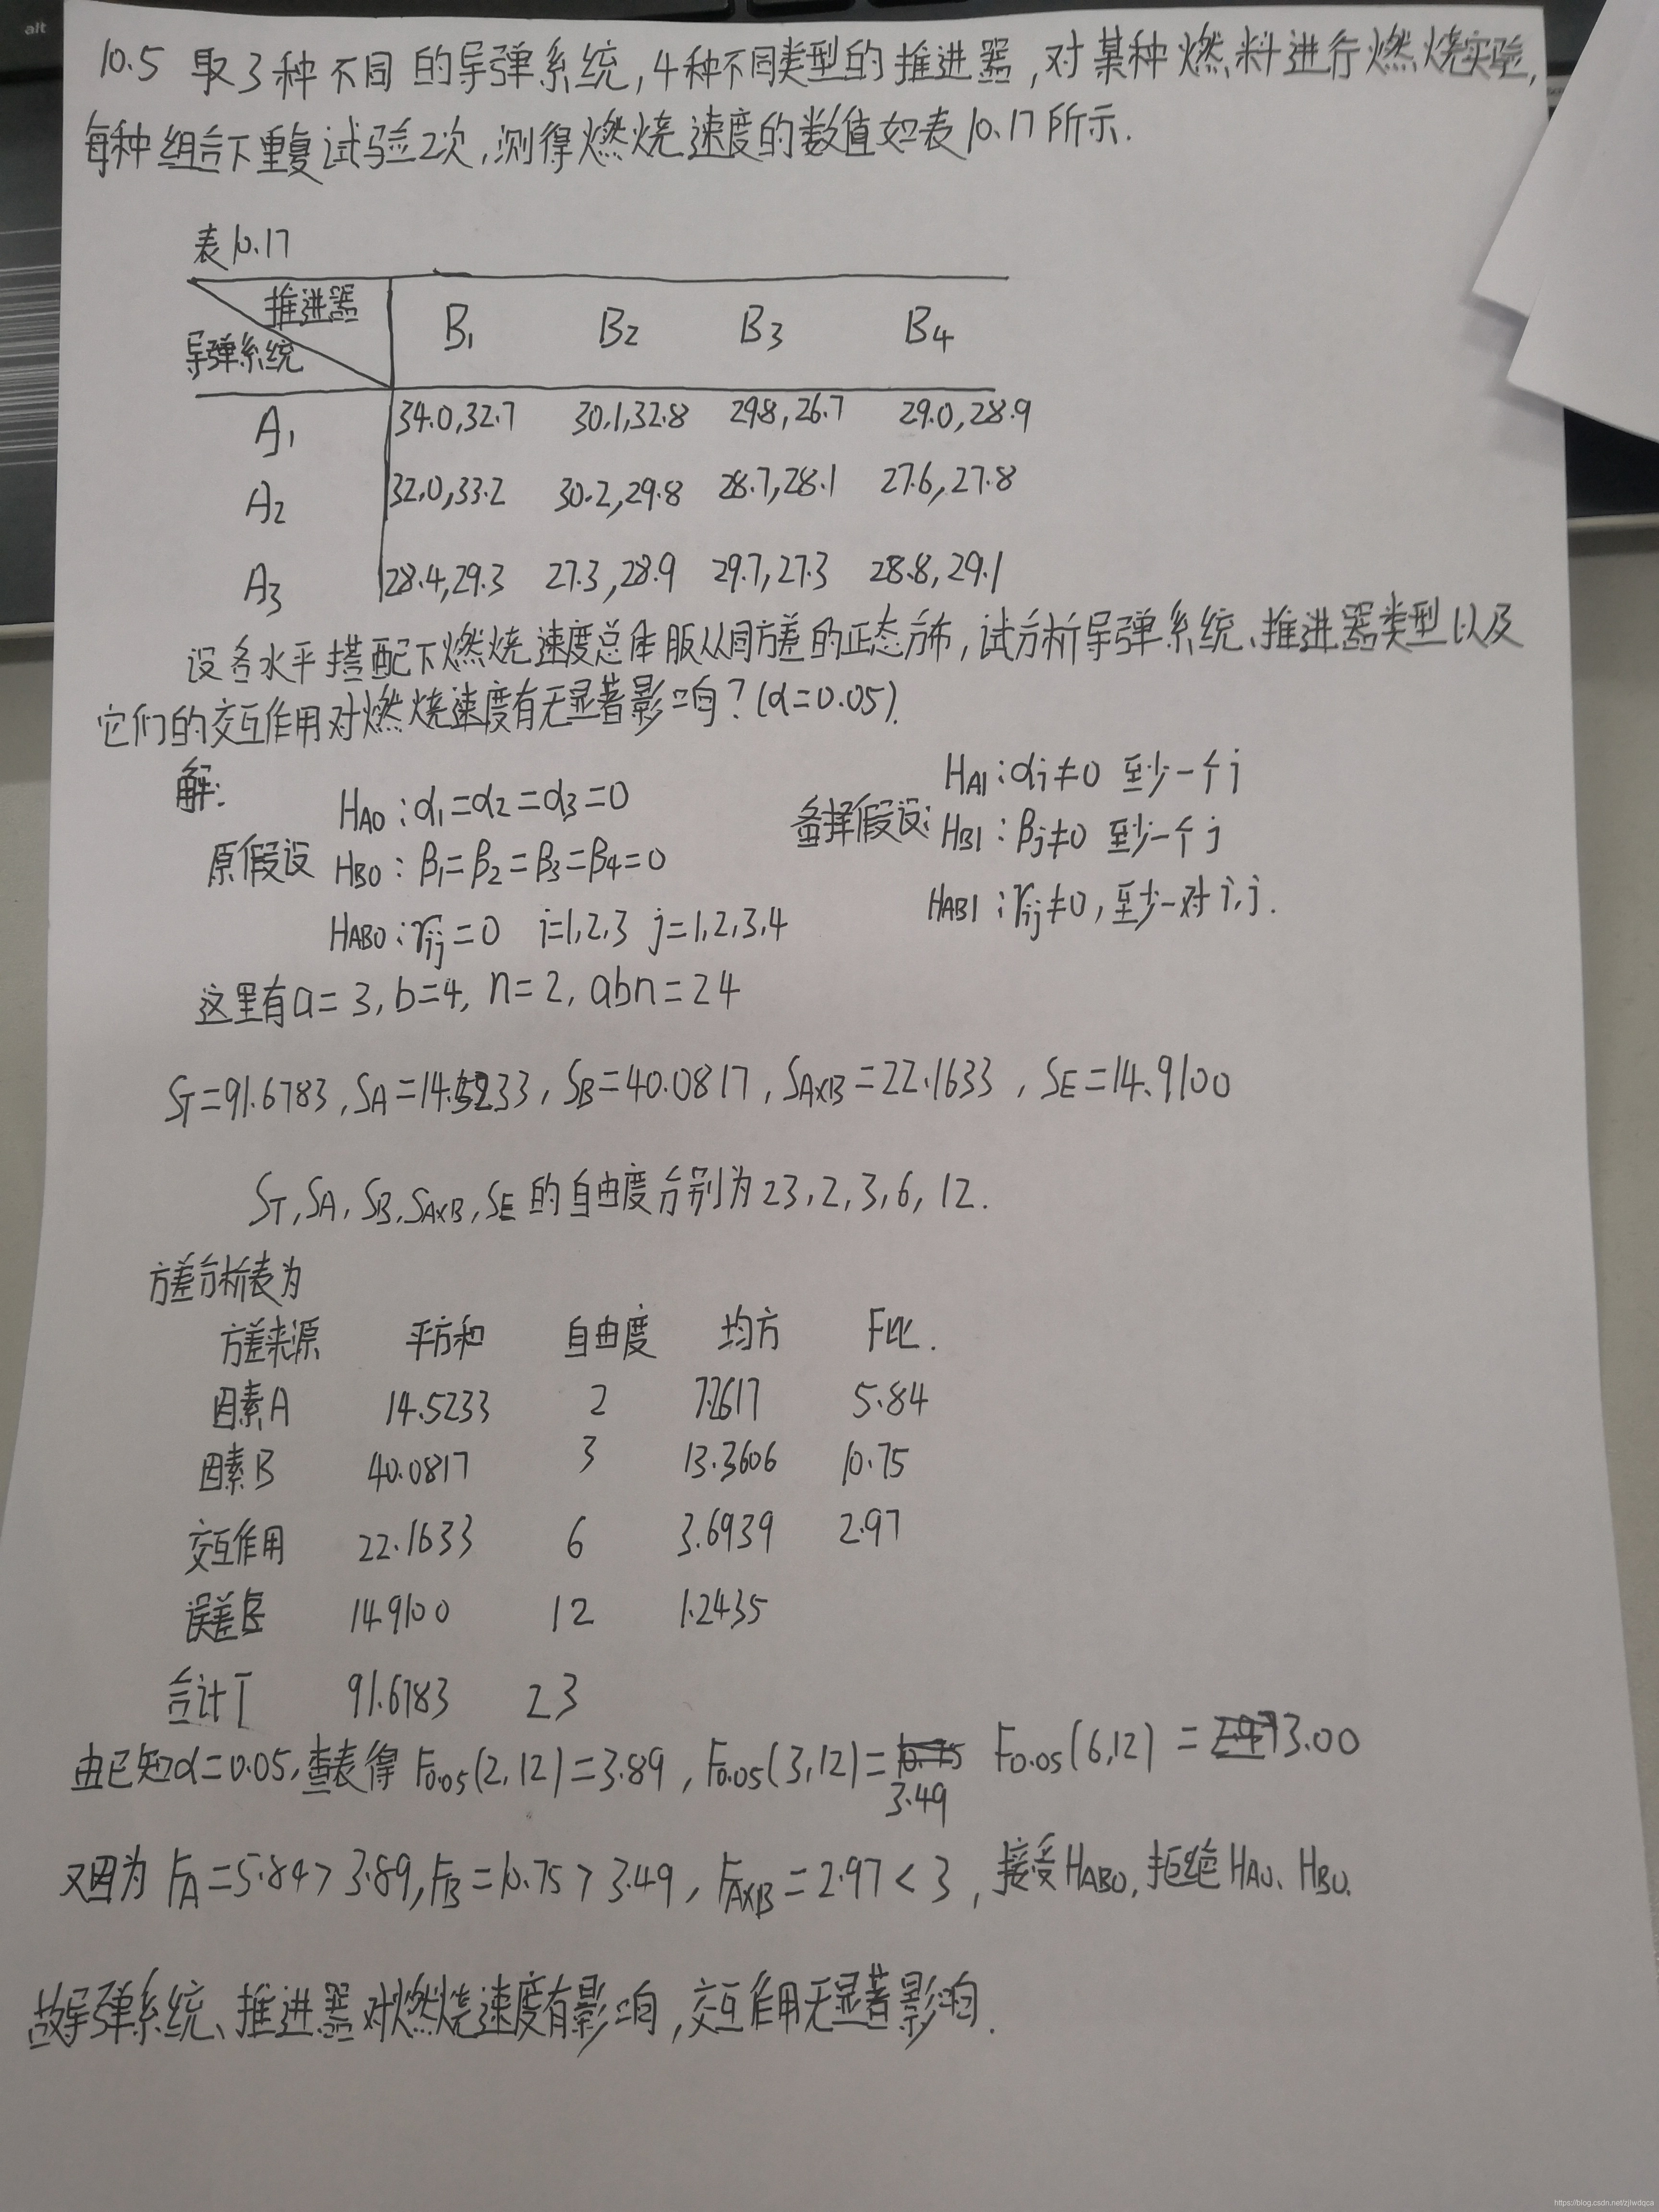 alt
10.5 取3种不同的导弹系统,4种不同类型的推进器,对某种燃料进行燃烧实验,
每种组合下重复试验2次,测得燃烧速度的数值如表10.17所示.
表10.17
推进器
导弹系统
B₁ B₂ B₃ B₄
A₁ 34.0,32.7 30.1,32.8 29.8,26.7 29.0,28.9
A₂ 32.0,33.2 30.2,29.8 28.7,28.1 27.6,27.8
A₃ 28.4,29.3 27.3,28.9 29.7,27.3 28.8,29.1
设各水平搭配下燃烧速度总体服从同方差的正态分布,试分析导弹系统、推进器类型以及
它们的交互作用对燃烧速度有无显著影响?(α=0.05).
解:
原假设 备择假设:
H_A0:α₁=α₂=α₃=0 H_A1:αi≠0 至少一个i
H_B0:β₁=β₂=β₃=β₄=0 H_B1:βj≠0 至少一个j
H_AB0:rij=0 i=1,2,3 j=1,2,3,4 H_AB1:rij≠0,至少一对i,j.
这里有a=3,b=4,n=2,abn=24
S_T=91.6783,S_A=14.5233,S_B=40.0817,S_A×B=22.1633,S_E=14.9100
S_T,S_A,S_B,S_A×B,S_E的自由度分别为23,2,3,6,12.
方差分析表为
方差来源 平方和 自由度 均方 F比.
因素A 14.5233 2 7.2617 5.84
因素B 40.0817 3 13.3606 10.75
交互作用 22.1633 6 3.6939 2.97
误差E 14.9100 12 1.2435
合计T 91.6783 23
由已知α=0.05,查表得F₀.₀₅(2,12)=3.89,F₀.₀₅(3,12)=3.49 F₀.₀₅(6,12)=3.00
又因为F_A=5.84>3.89,F_B=10.75>3.49,F_A×B=2.97<3,接受H_AB0,拒绝H_A0、H_B0.
故导弹系统、推进器对燃烧速度有影响,交互作用无显著影响.
https://blog.csdn.net/zjlwdqca